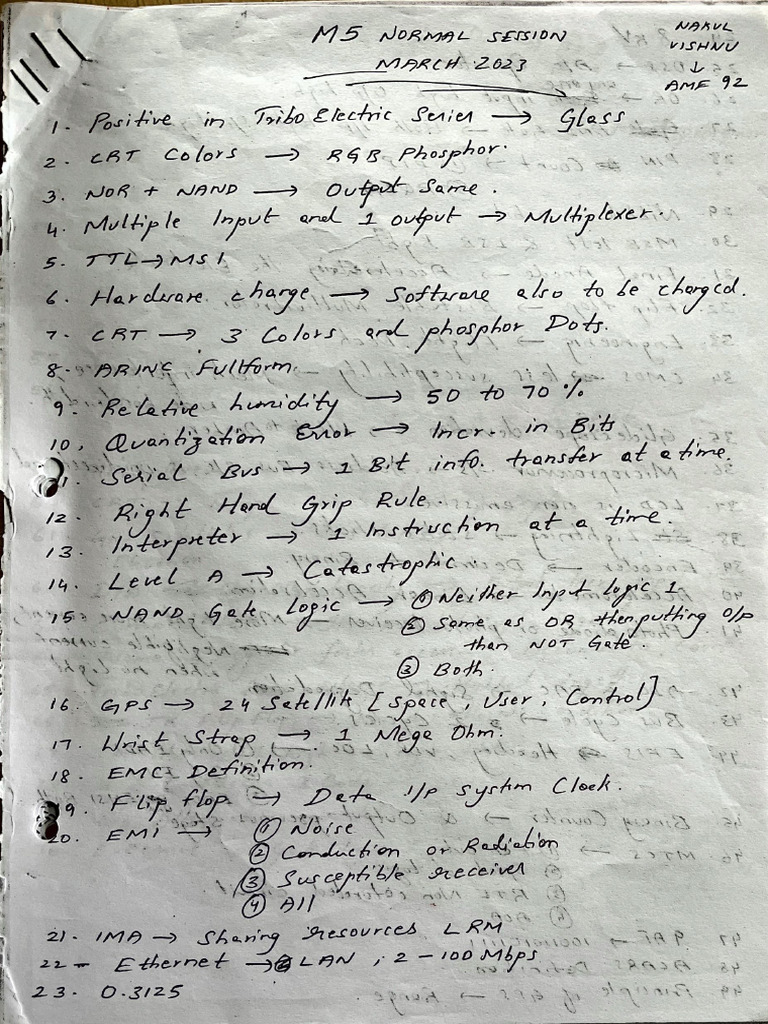 M5 NORMAL SESSION
MARCH 2023
NAKUL
VISHNU
↓
AME 92
1. Positive in Tribo Electric Series → Glass
2. CRT Colors → RGB Phosphor.
3. NOR + NAND → Output Same.
4. Multiple Input and 1 output → Multiplexer.
5. TTL → MSI
6. Hardware change → Software also to be changed.
7. CRT → 3 Colors and phosphor Dots.
8. ARINC Fullform.
9. Relative humidity → 50 to 70 %
10. Quantization Error → Incr. in Bits
11. Serial Bus → 1 Bit info. transfer at a time.
12. Right Hand Grip Rule.
13. Interpreter → 1 Instruction at a time.
14. Level A → Catastrophic
15. NAND Gate logic → ① Neither Input logic 1
② Same as OR then putting O/P
than NOT Gate.
③ Both.
16. GPS → 24 Satellite [Space, User, Control]
17. Wrist Strap → 1 Mega Ohm.
18. EMC Definition.
19. Flip flop → Data I/p system Clock.
20. EMI → ① Noise
② Conduction or Radiation
③ Susceptible receiver
④ All
21. IMA → Sharing resources LRM
22 - Ethernet → LAN, 2 - 100 Mbps
23. 0.3125